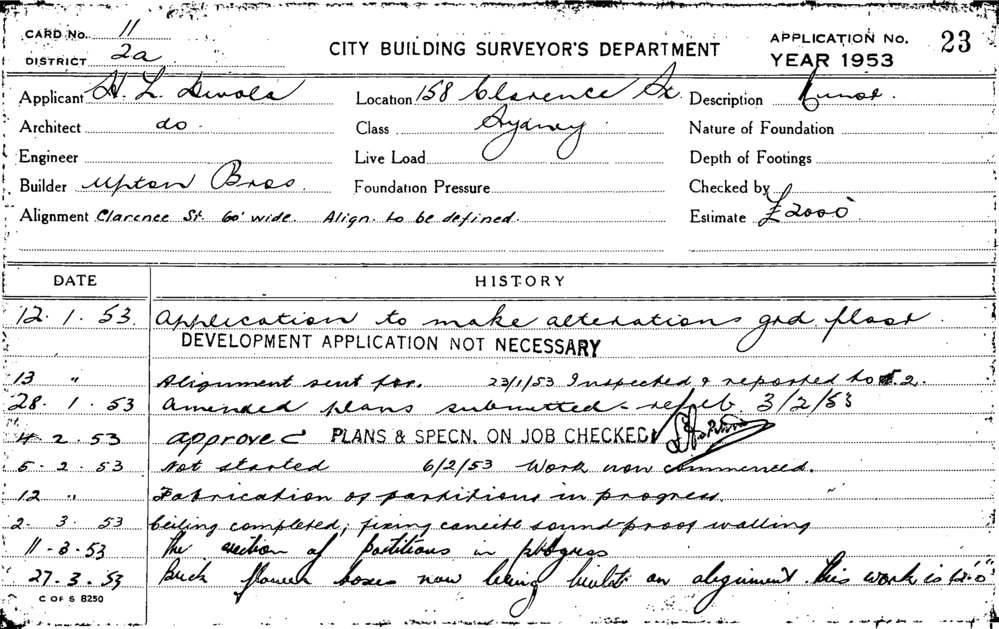 CARD No. 11
DISTRICT 2a
CITY BUILDING SURVEYOR'S DEPARTMENT
APPLICATION No. 23
YEAR 1953
Applicant H. L.
Location 158 Clarence St.
Description
Architect do.
Class Sydney
Nature of Foundation
Engineer
Live Load
Depth of Footings
Builder Upton Bros
Foundation Pressure
Checked by
Alignment Clarence St. 60' wide. Align. to be defined.
Estimate £2000
DATE HISTORY
12. 1. 53. Application to make alterations grd. floor.
DEVELOPMENT APPLICATION NOT NECESSARY
13 " Alignment sent for. 23/1/53 Inspected & reported to 2.
28. 1. 53 Amended plans submitted - 3/2/53
4. 2. 53 approved PLANS & SPECN. ON JOB CHECKED
5. 2. 53 Not started 6/2/53 Work now commenced.
12 " Fabrication of partitions in progress.
2. 3. 53 Ceiling completed, fixing canecite sound proof walling
11-3-53 The erection of partitions in progress
27. 3. 53 Brick flower boxes now being built on alignment. this work is
C OF S 8250